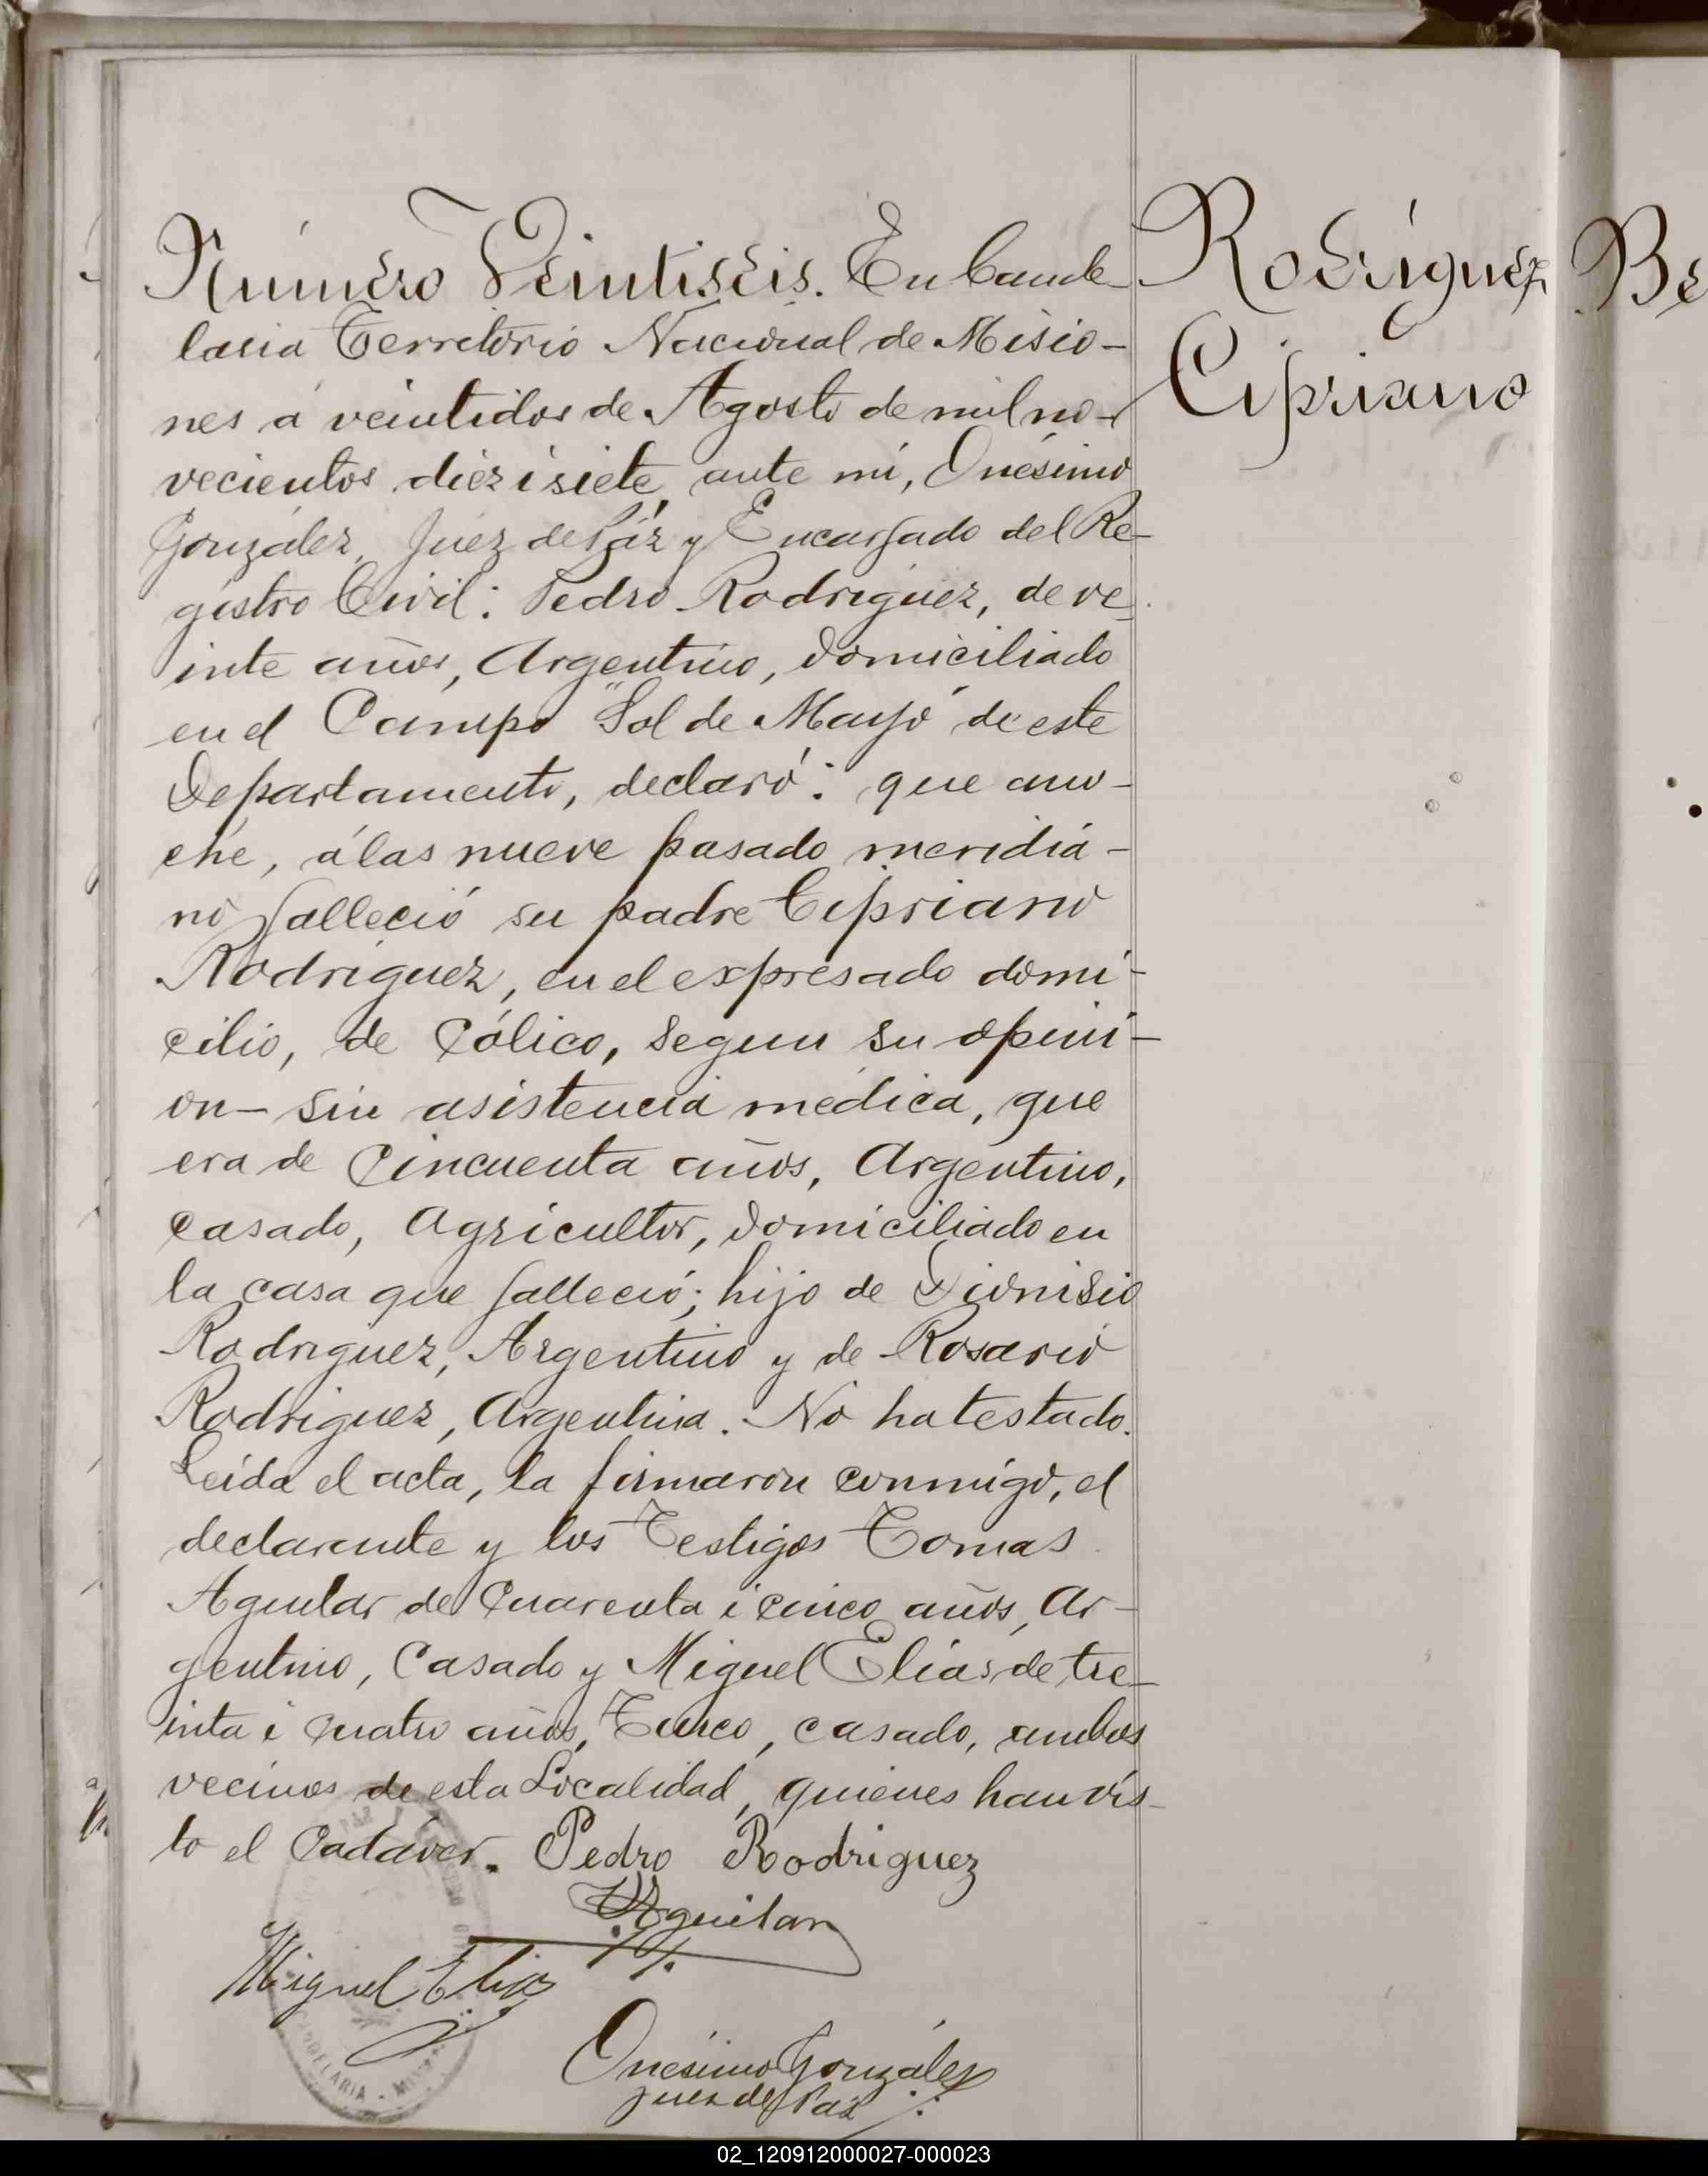 Número Veintiseis. En Cande
laria Territorio Nacional de Misio-
nes á veintidos de Agosto de mil no-
vecientos diez i siete, ante mi, Onésimo
González, Juez de Páz y Encargado del Re-
gistro Civil: Pedro Rodriguez, de ve
inte años, Argentino, domiciliado
en el Campo "Sol de Mayo" de este
Departamento, declaró: que ano-
che, á las nueve pasado meridia-
no falleció su padre Cipriano
Rodriguez, en el expresado domi-
cilio, de Cólico, segun su opini-
on- sin asistencia médica, que
era de Cincuenta años, Argentino,
casado, Agricultor, domiciliado en
la casa que falleció; hijo de Dionisio
Rodriguez, Argentino y de Rosario
Rodriguez, Argentina. No ha testado.
Leida el acta, la firmaron conmigo, el
declarante y los Testigos Tomas
Aguilar de Cuarenta i cinco años, Ar-
gentino, Casado y Miguel Elías de tre-
inta i Cuatro años, Turco, casado, ambos
vecinos de esta Localidad, quienes han vis-
to el Cadáver. Pedro Rodriguez
Aguilar
Miguel Elias
Onésimo González
Juez de Paz
Rodríguez
Cipriano
Be
CANDELARIA - 
02_120912000027-000023